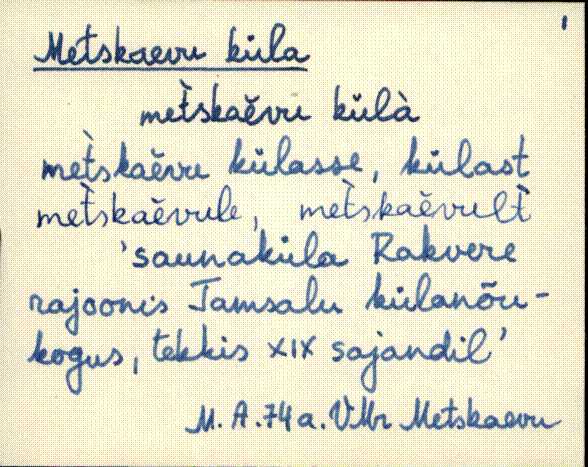 1
Metskaevu küla
mèt̀skaĕvu külà
mèt̀skaĕvu külasse, külast
mèt̀skaĕvule, mèt̀skaĕvult̀
'saunaküla Rakvere
rajoonis Tamsalu külanõu-
kogus, tekkis XIX sajandil'
M. A. 74 a. VMr Metskaevu